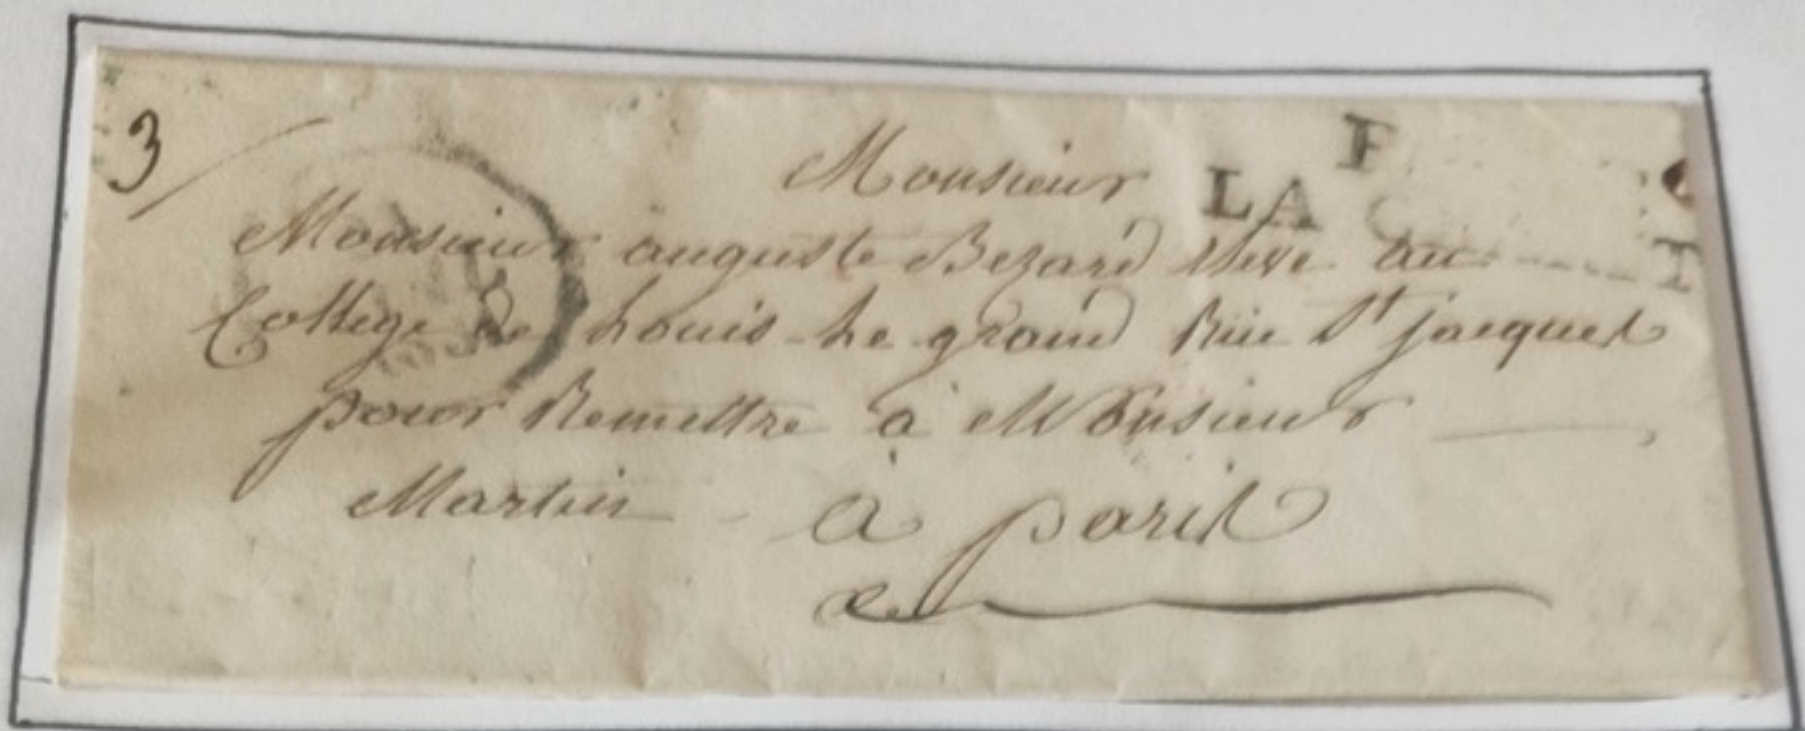 3
F
Monsieur LA
Monsieur auguste Bezard eleve au T
College de Louis-Le grand Rue St jacques
pour Remettre a Monsieur
Martin - a paris